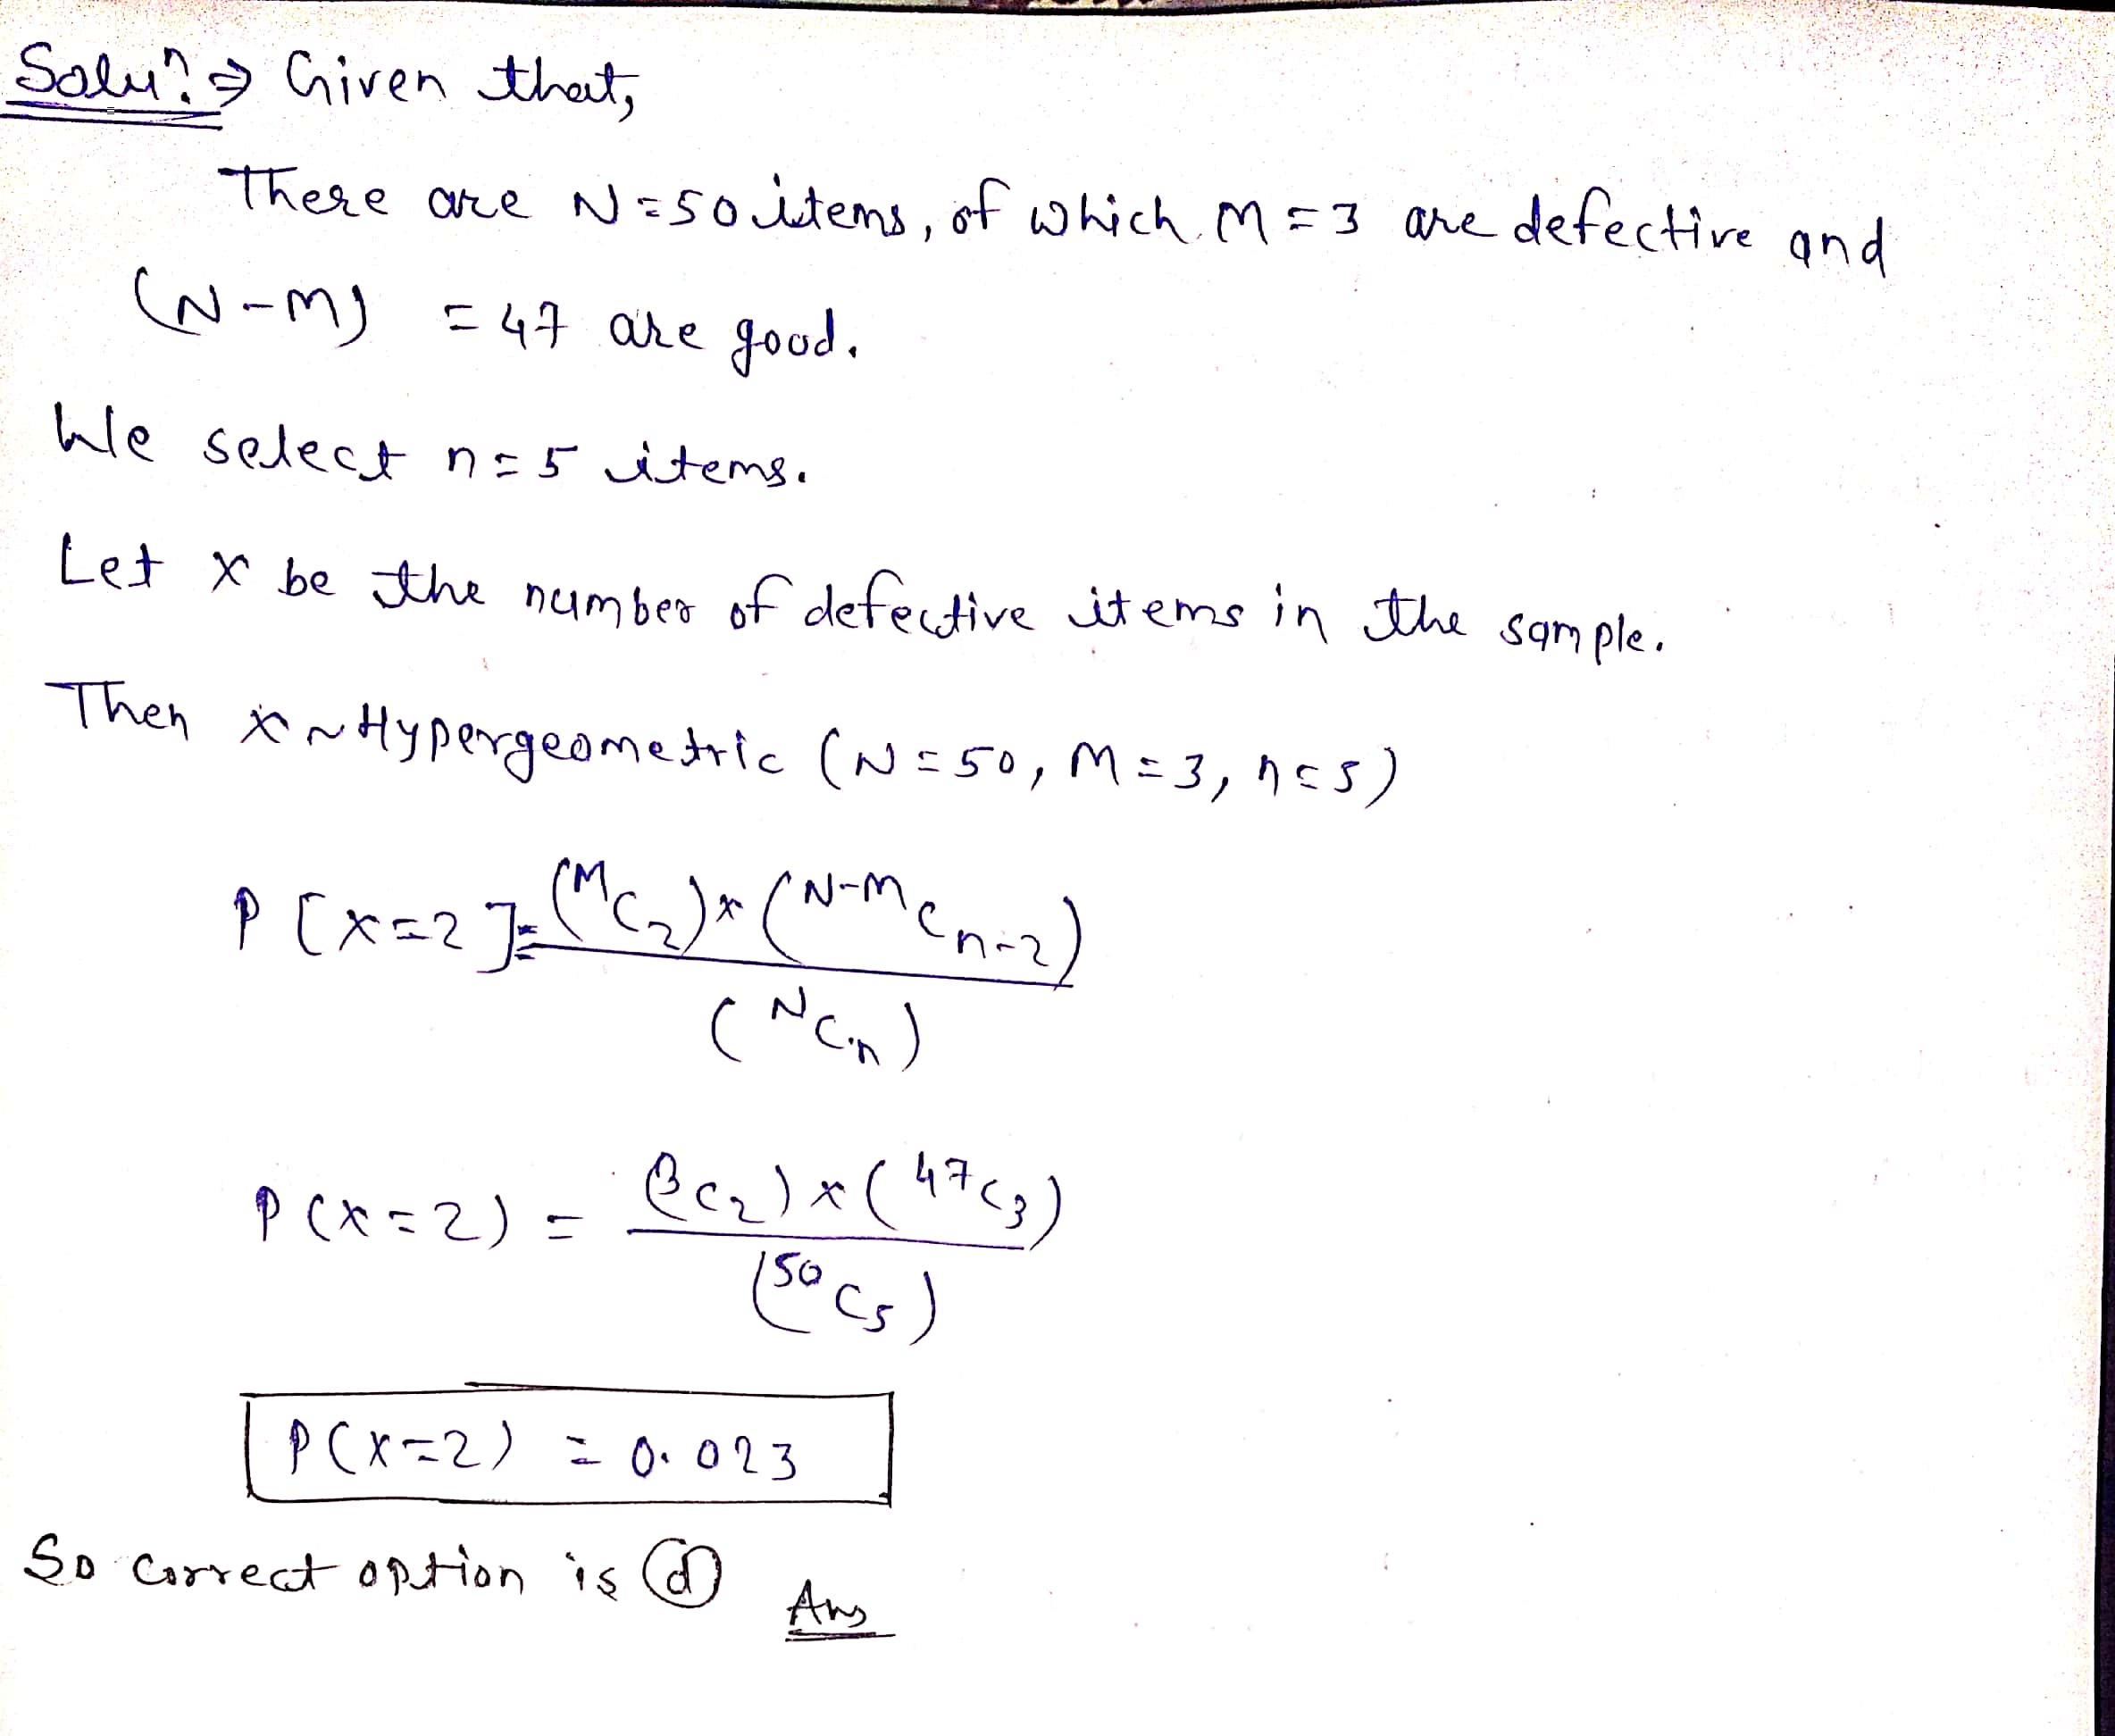 Solun. ⇒ Given that,
There are N=50 items, of which M=3 are defective and
(N-M) = 47 are good.
We select n=5 items.
Let X be the number of defective items in the sample.
Then X~Hypergeometric (N=50, M=3, n=5)
P[X=2]= (ᴹC₂)×(ᴺ⁻ᴹCₙ₋₂)
(ᴺCₙ)
P(X=2) = (³C₂)×(⁴⁷C₃)
(⁵⁰C₅)
P(X=2) = 0.023
So correct option is (d) Ans